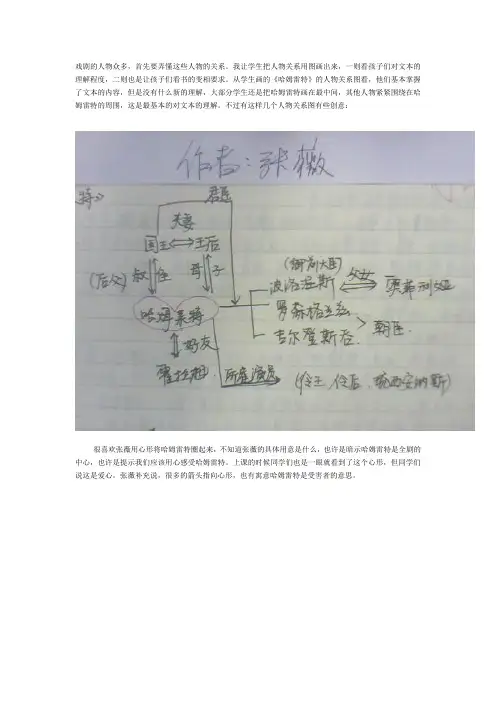 戏剧的人物众多，首先要弄懂这些人物的关系。我让学生把人物关系用图画出来，一则看孩子们对文本的
理解程度，二则也是让孩子们看书的变相要求。从学生画的《哈姆雷特》的人物关系图看，他们基本掌握
了文本的内容，但是没有什么新的理解，大部分学生还是把哈姆雷特画在最中间，其他人物紧紧围绕在哈
姆雷特的周围，这是最基本的对文本的理解。不过有这样几个人物关系图有些创意：
作者：张薇
君臣
夫妻
国王 王后
(后父) 叔 侄 母 子
(御前大臣)
波洛涅斯 父女
哈姆莱特 罗森格兰兹
吉尔登斯吞 朝臣.
好友
霍拉旭. (伶王、伶后、
很喜欢张薇用心形将哈姆雷特圈起来，不知道张薇的具体用意是什么，也许是暗示哈姆雷特是全剧的
中心，也许是提示我们应该用心感受哈姆雷特。上课的时候同学们也是一眼就看到了这个心形，但同学们
说这是爱心。张薇补充说，很多的箭头指向心形，也有寓意哈姆雷特是受害者的意思。